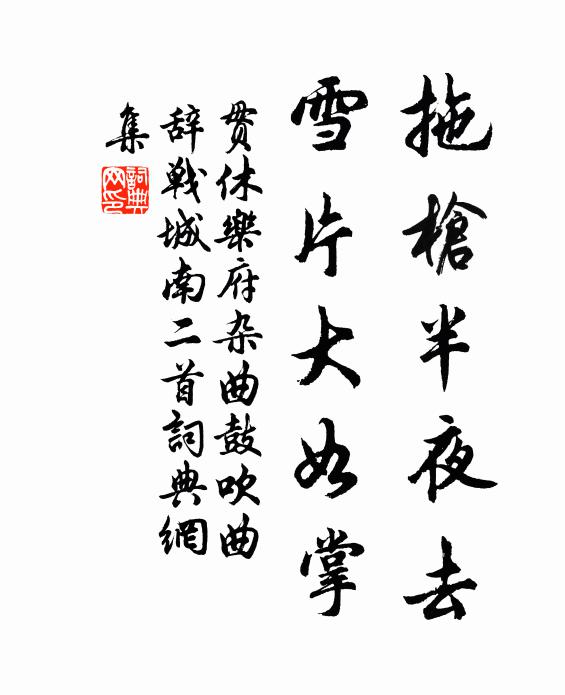 拖槍半夜去
雪片大如掌
贯休樂府杂曲鼓吹曲
辞戰城南二首詞典網
集
詞典
网印